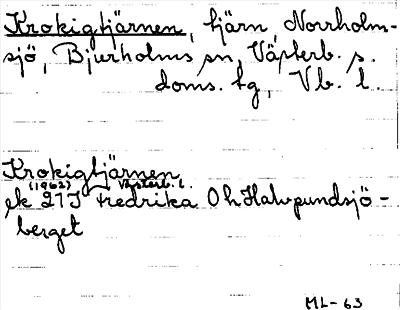 Krokigtjärnen, tjärn, Norrholm-
sjö, Bjurholms sn, Västerb. s.
doms. tg, Vb. l.
Krokigtjärnen
(1962) Västerb. l.
ek 21J Fredrika Oh Halvpundsjö-
berget
ML-63